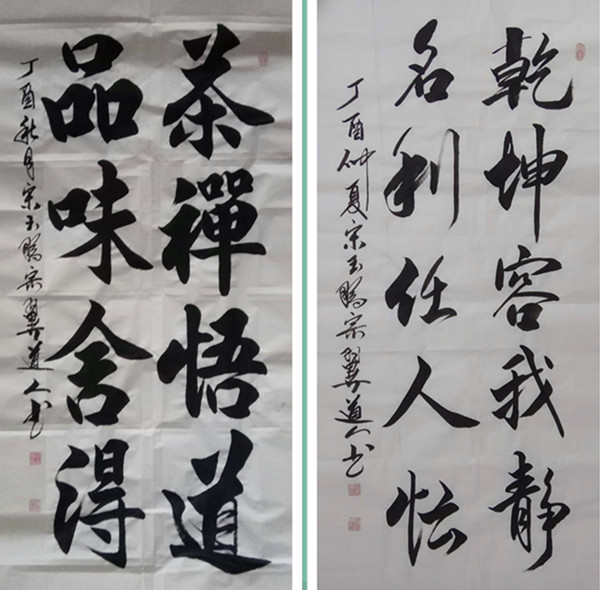 茶禪悟道
品味舍得
丁酉秋月宋玉鵬宗翼道人书
乾坤容我静
名利任人忙
丁酉仲夏宋玉鵬宗翼道人书